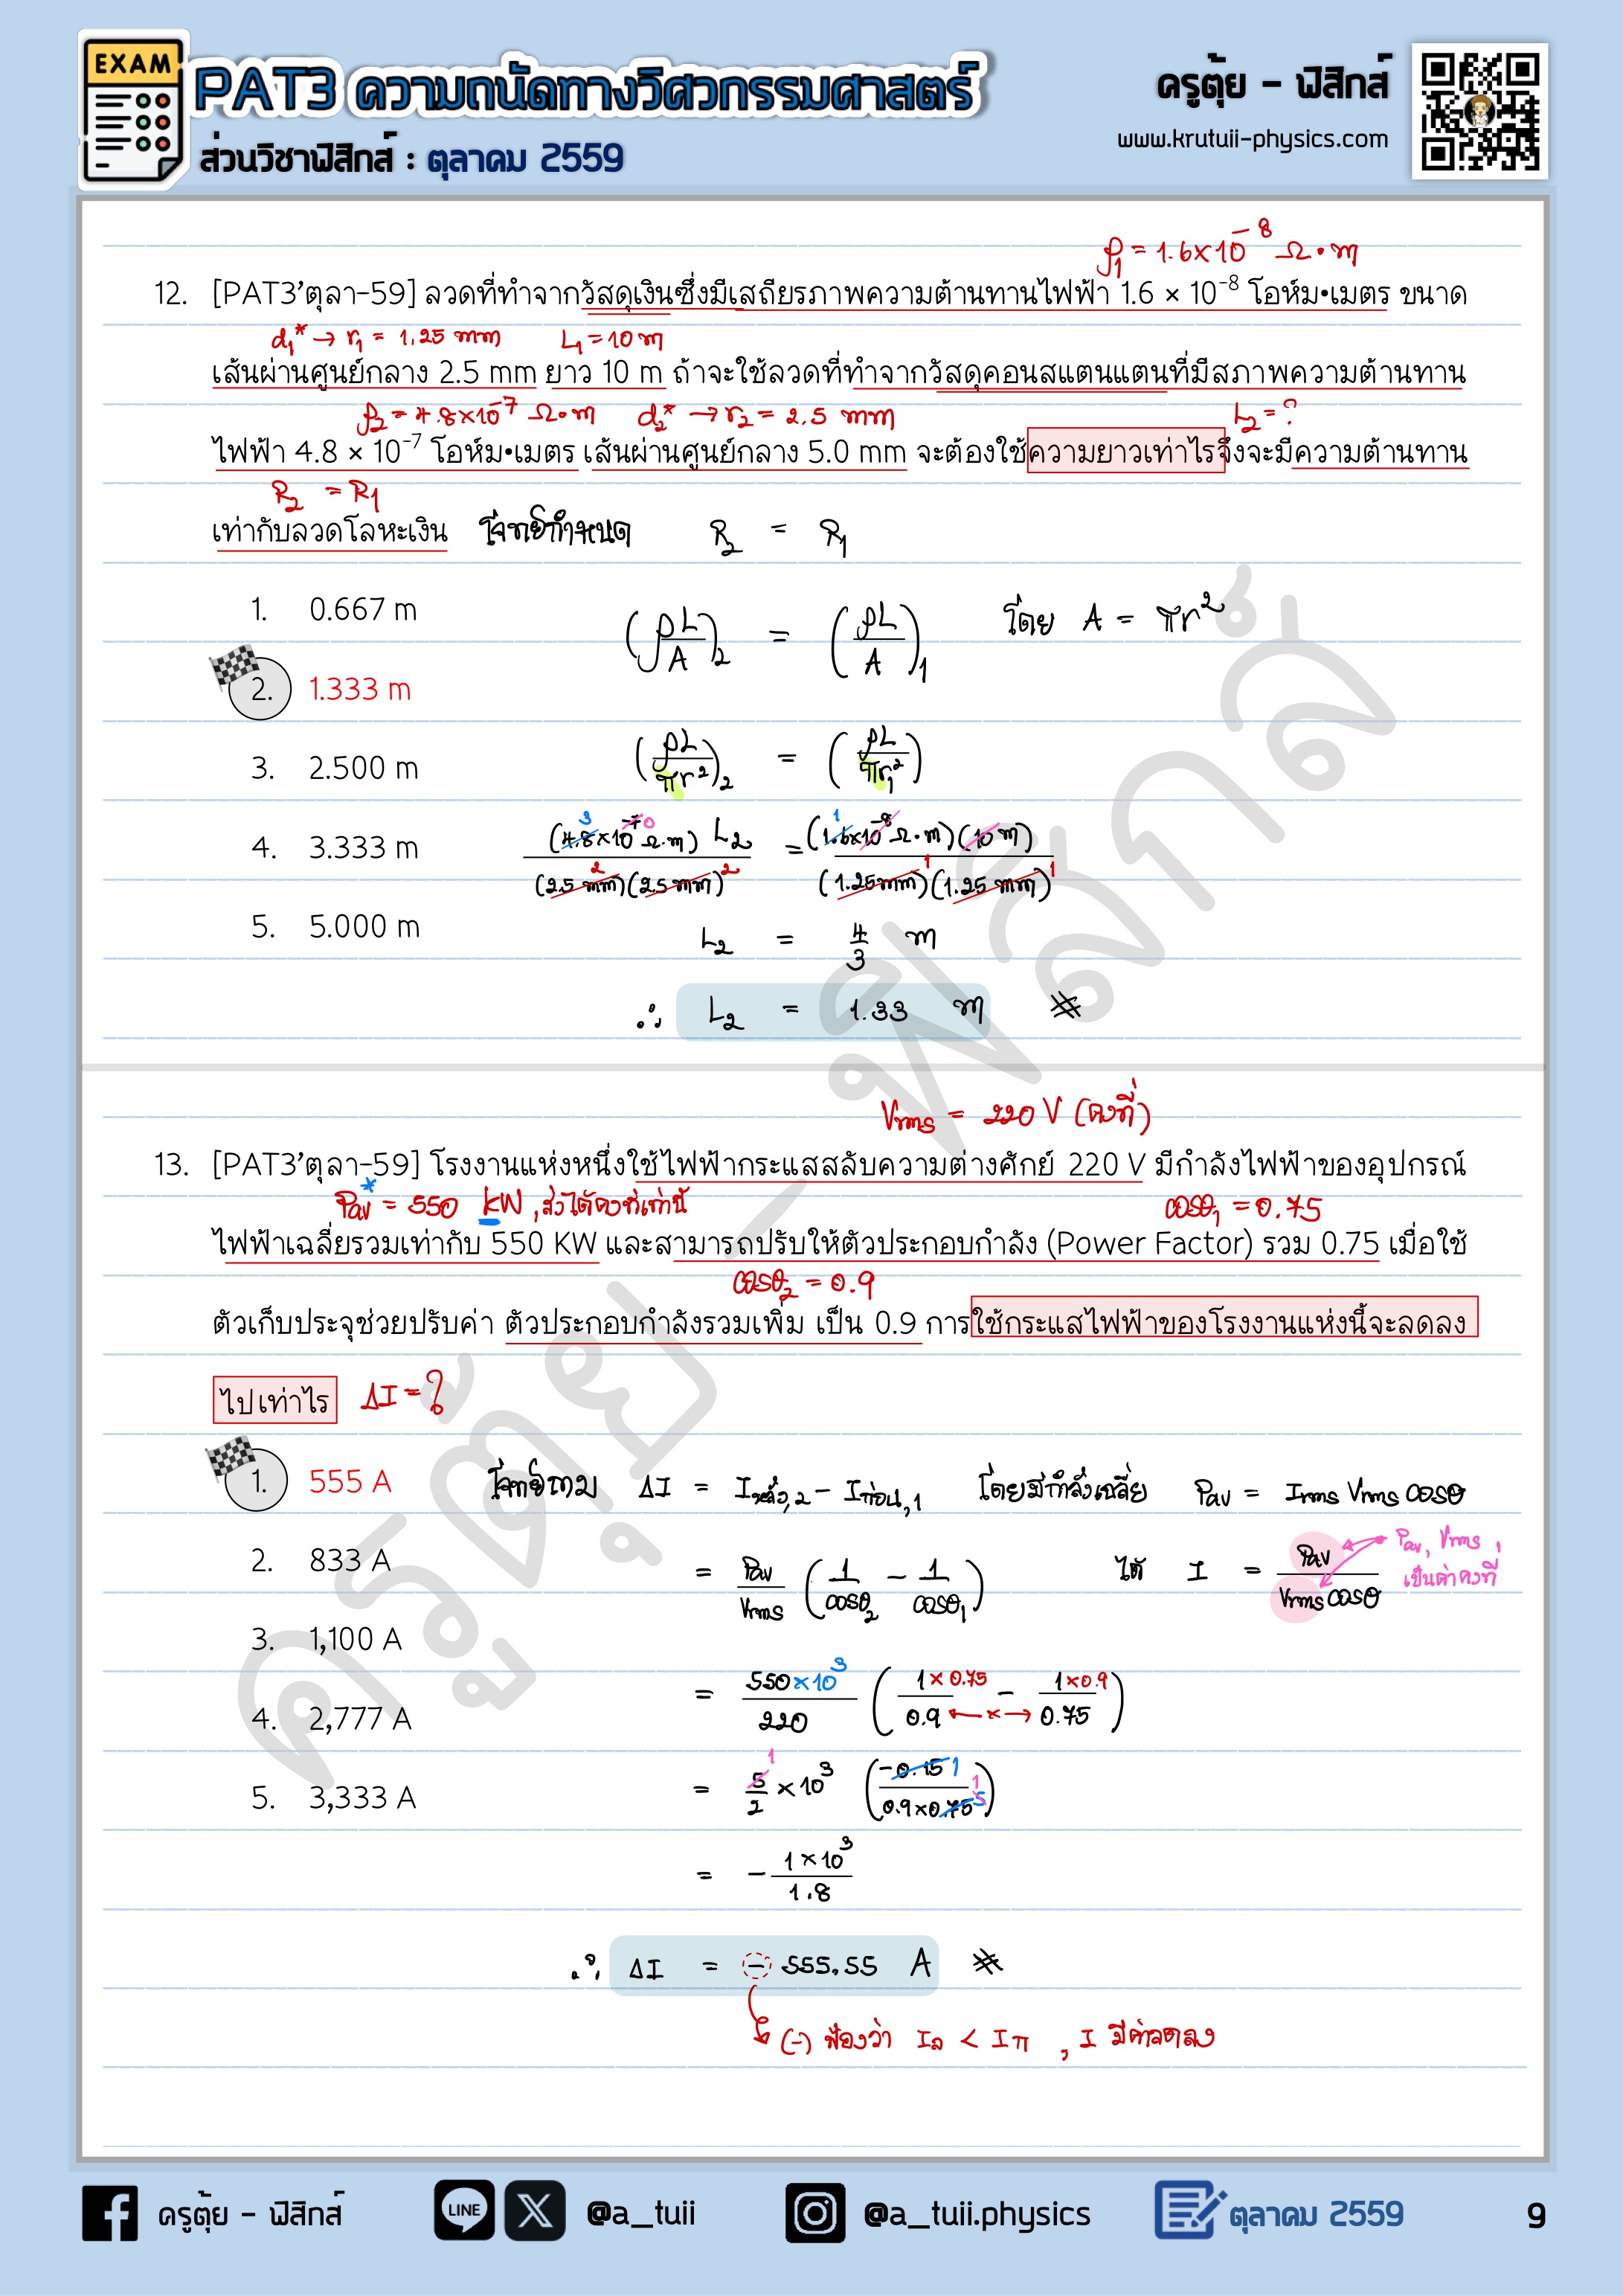 EXAM
PAT3 ความถนัดทางวิศวกรรมศาสตร์
ส่วนวิชาฟิสิกส์ : ตุลาคม 2559
ครูตุ้ย – ฟิสิกส์
www.krutuii-physics.com
ρ₁ = 1.6×10⁻⁸ Ω·m
12. [PAT3’ตุลา-59] ลวดที่ทำจากวัสดุเงินซึ่งมีเสถียรภาพความต้านทานไฟฟ้า 1.6 × 10⁻⁸ โอห์ม•เมตร ขนาด
d₁* → r₁ = 1.25 mm L₁ = 10 m
เส้นผ่านศูนย์กลาง 2.5 mm ยาว 10 m ถ้าจะใช้ลวดที่ทำจากวัสดุคอนสแตนแตนที่มีสภาพความต้านทาน
ρ₂ = 4.8×10⁻⁷ Ω·m d₂* → r₂ = 2.5 mm L₂ = ?
ไฟฟ้า 4.8 × 10⁻⁷ โอห์ม•เมตร เส้นผ่านศูนย์กลาง 5.0 mm จะต้องใช้ความยาวเท่าไรจึงจะมีความต้านทาน
R₂ = R₁
เท่ากับลวดโลหะเงิน โจทย์กำหนด R₂ = R₁
1. 0.667 m
(ρL/A)₂ = (ρL/A)₁ โดย A = πr²
2. 1.333 m
3. 2.500 m
(ρL/πr²)₂ = (ρL/πr₁²)
4. 3.333 m
(4.8×10⁻⁷ Ω·m) L₂ / (2.5 mm)(2.5 mm) = (1.6×10⁻⁸ Ω·m)(10 m) / (1.25 mm)(1.25 mm)
5. 5.000 m
L₂ = 4/3 m
∴ L₂ = 1.33 m #
Vrms = 220 V (คงที่)
13. [PAT3’ตุลา-59] โรงงานแห่งหนึ่งใช้ไฟฟ้ากระแสสลับความต่างศักย์ 220 V มีกำลังไฟฟ้าของอุปกรณ์
Pav* = 550 kW , ส่งได้คงที่เท่านี้ cosθ₁ = 0.75
ไฟฟ้าเฉลี่ยรวมเท่ากับ 550 KW และสามารถปรับให้ตัวประกอบกำลัง (Power Factor) รวม 0.75 เมื่อใช้
cosθ₂ = 0.9
ตัวเก็บประจุช่วยปรับค่า ตัวประกอบกำลังรวมเพิ่ม เป็น 0.9 การใช้กระแสไฟฟ้าของโรงงานแห่งนี้จะลดลง
ไปเท่าไร ΔI = ?
1. 555 A
โจทย์ถาม ΔI = Iหลัง,2 − Iก่อน,1 โดยมีกำลังเฉลี่ย Pav = Irms Vrms cosθ
Pav, Vrms ,
เป็นค่าคงที่
2. 833 A
= Pav/Vrms (1/cosθ₂ − 1/cosθ₁) ได้ I = Pav/Vrms cosθ
3. 1,100 A
= 550×10³/220 (1×0.75/0.9 ←×→ − 1×0.9/0.75)
4. 2,777 A
= 5/2 ×10³ (−0.15/0.9×0.75)
5. 3,333 A
= − 1×10³/1.8
∴ ΔI = − 555.55 A #
(−) ฟ้องว่า Iล < Iก , I มีค่าลดลง
ครูตุ้ย – ฟิสิกส์
ครูตุ้ย – ฟิสิกส์
LINE
@a_tuii
@a_tuii.physics
ตุลาคม 2559
9